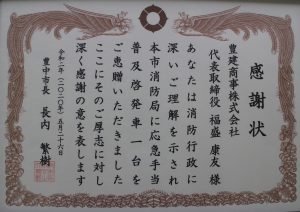 感謝状
豊建商事株式会社
代表取締役 福盛 康友 様
あなたは消防行政に
深いご理解を示され
本市消防局に応急手当
普及啓発車一台を
ご恵贈いただきました
ここにそのご厚志に対し
深く感謝の意を表します
令和二年（二〇二〇年）五月二十六日
豊中市長 長内 繁樹